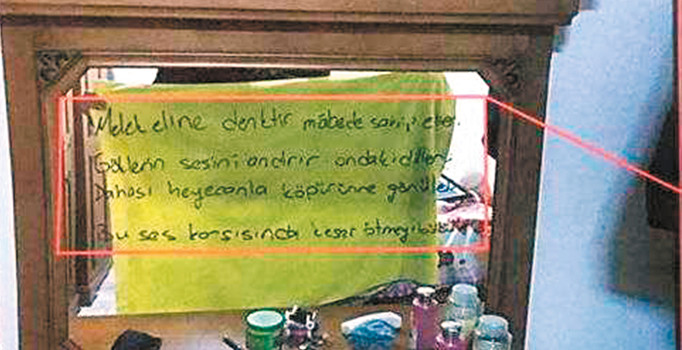 Melek eline denktir mâbede sahip eller.
Göllerin sesini andırır ondaki diller,
Dahası heyecanla köpürünce gönüller
Bu ses karşısında keser ötmeyi